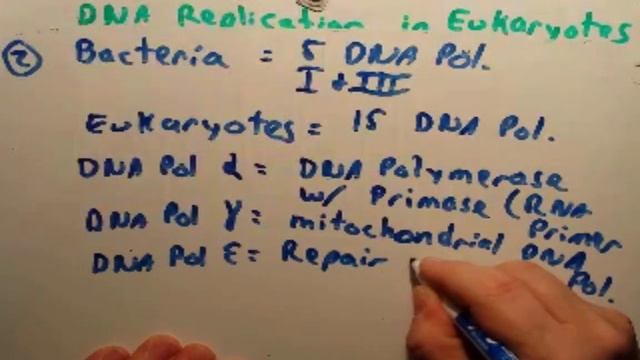 DNA Replication in Eukaryotes
② Bacteria = 5 DNA Pol.
I + III
Eukaryotes = 15 DNA Pol.
DNA Pol α = DNA Polymerase
w/ Primase (RNA
Primer
DNA Pol γ = mitochondrial DNA
Pol.
DNA Pol ε = Repair